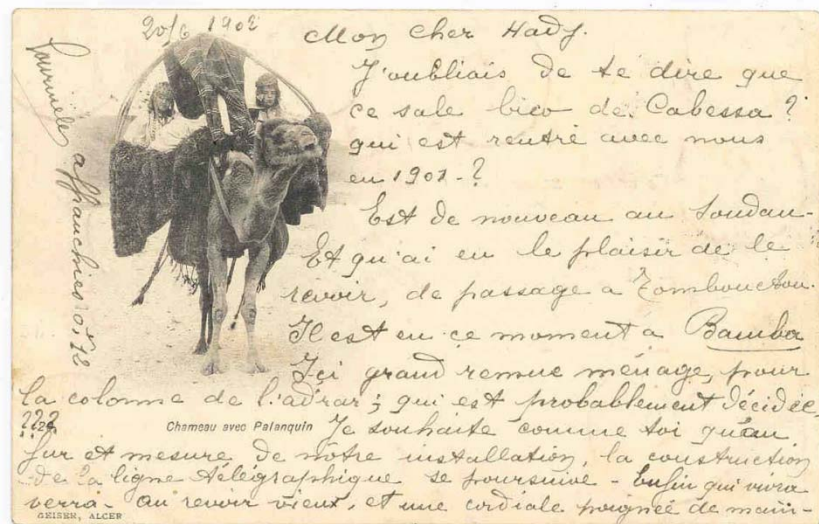 20/6 1902
Mon cher Hady.
J'oubliais de te dire que
ce sale bico de Cabessa?
qui est rentré avec nous
en 1901-?
Est de nouveau au Soudan-
Et qu'ai eu le plaisir de le
revoir, de passage a Tombouctou.
Il est en ce moment a Bamba
Ici grand remue ménage, pour
la colonne de l'adrar; qui est probablement décidée,
Je souhaite comme toi qu'au
fur et mesure de nôtre installation, la construction
de la ligne télégraphique se poursuive - Enfin qui vivra
verra - au revoir vieux, et une cordiale poignée de main-
affranchies
Chameau avec Palanquin
GEISER, ALGER